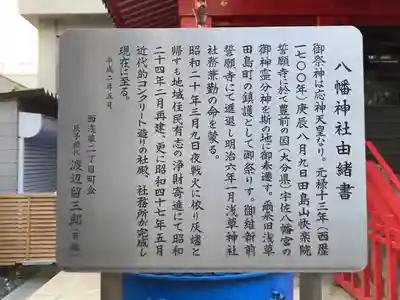 八幡神社由緒書
御祭神は応神天皇なり。元禄十三年(西歴
一七〇〇年)庚辰八月九日田島山快楽院
誓願寺に於て豊前の国(大分県)宇佐八幡宮の
御神霊分神を斯の地に御奉遷す。爾来旧浅草
田島町の鎮護として御祭べす。御維新前
誓願寺にて遷退し明治六年一月浅草神社
社務兼勤の命を蒙る。
昭和二十年三月九日夜戦火に依り灰燼と
帰すも地域住民有志の浄財寄進にて昭和
二十四年二月再建、更に昭和四十七年五月
近代的コンクリート造りの社殿、社務所が完成し
現在に至る。
平成二年五月
西浅草二丁目町会
氏子総代 渡辺留三郎